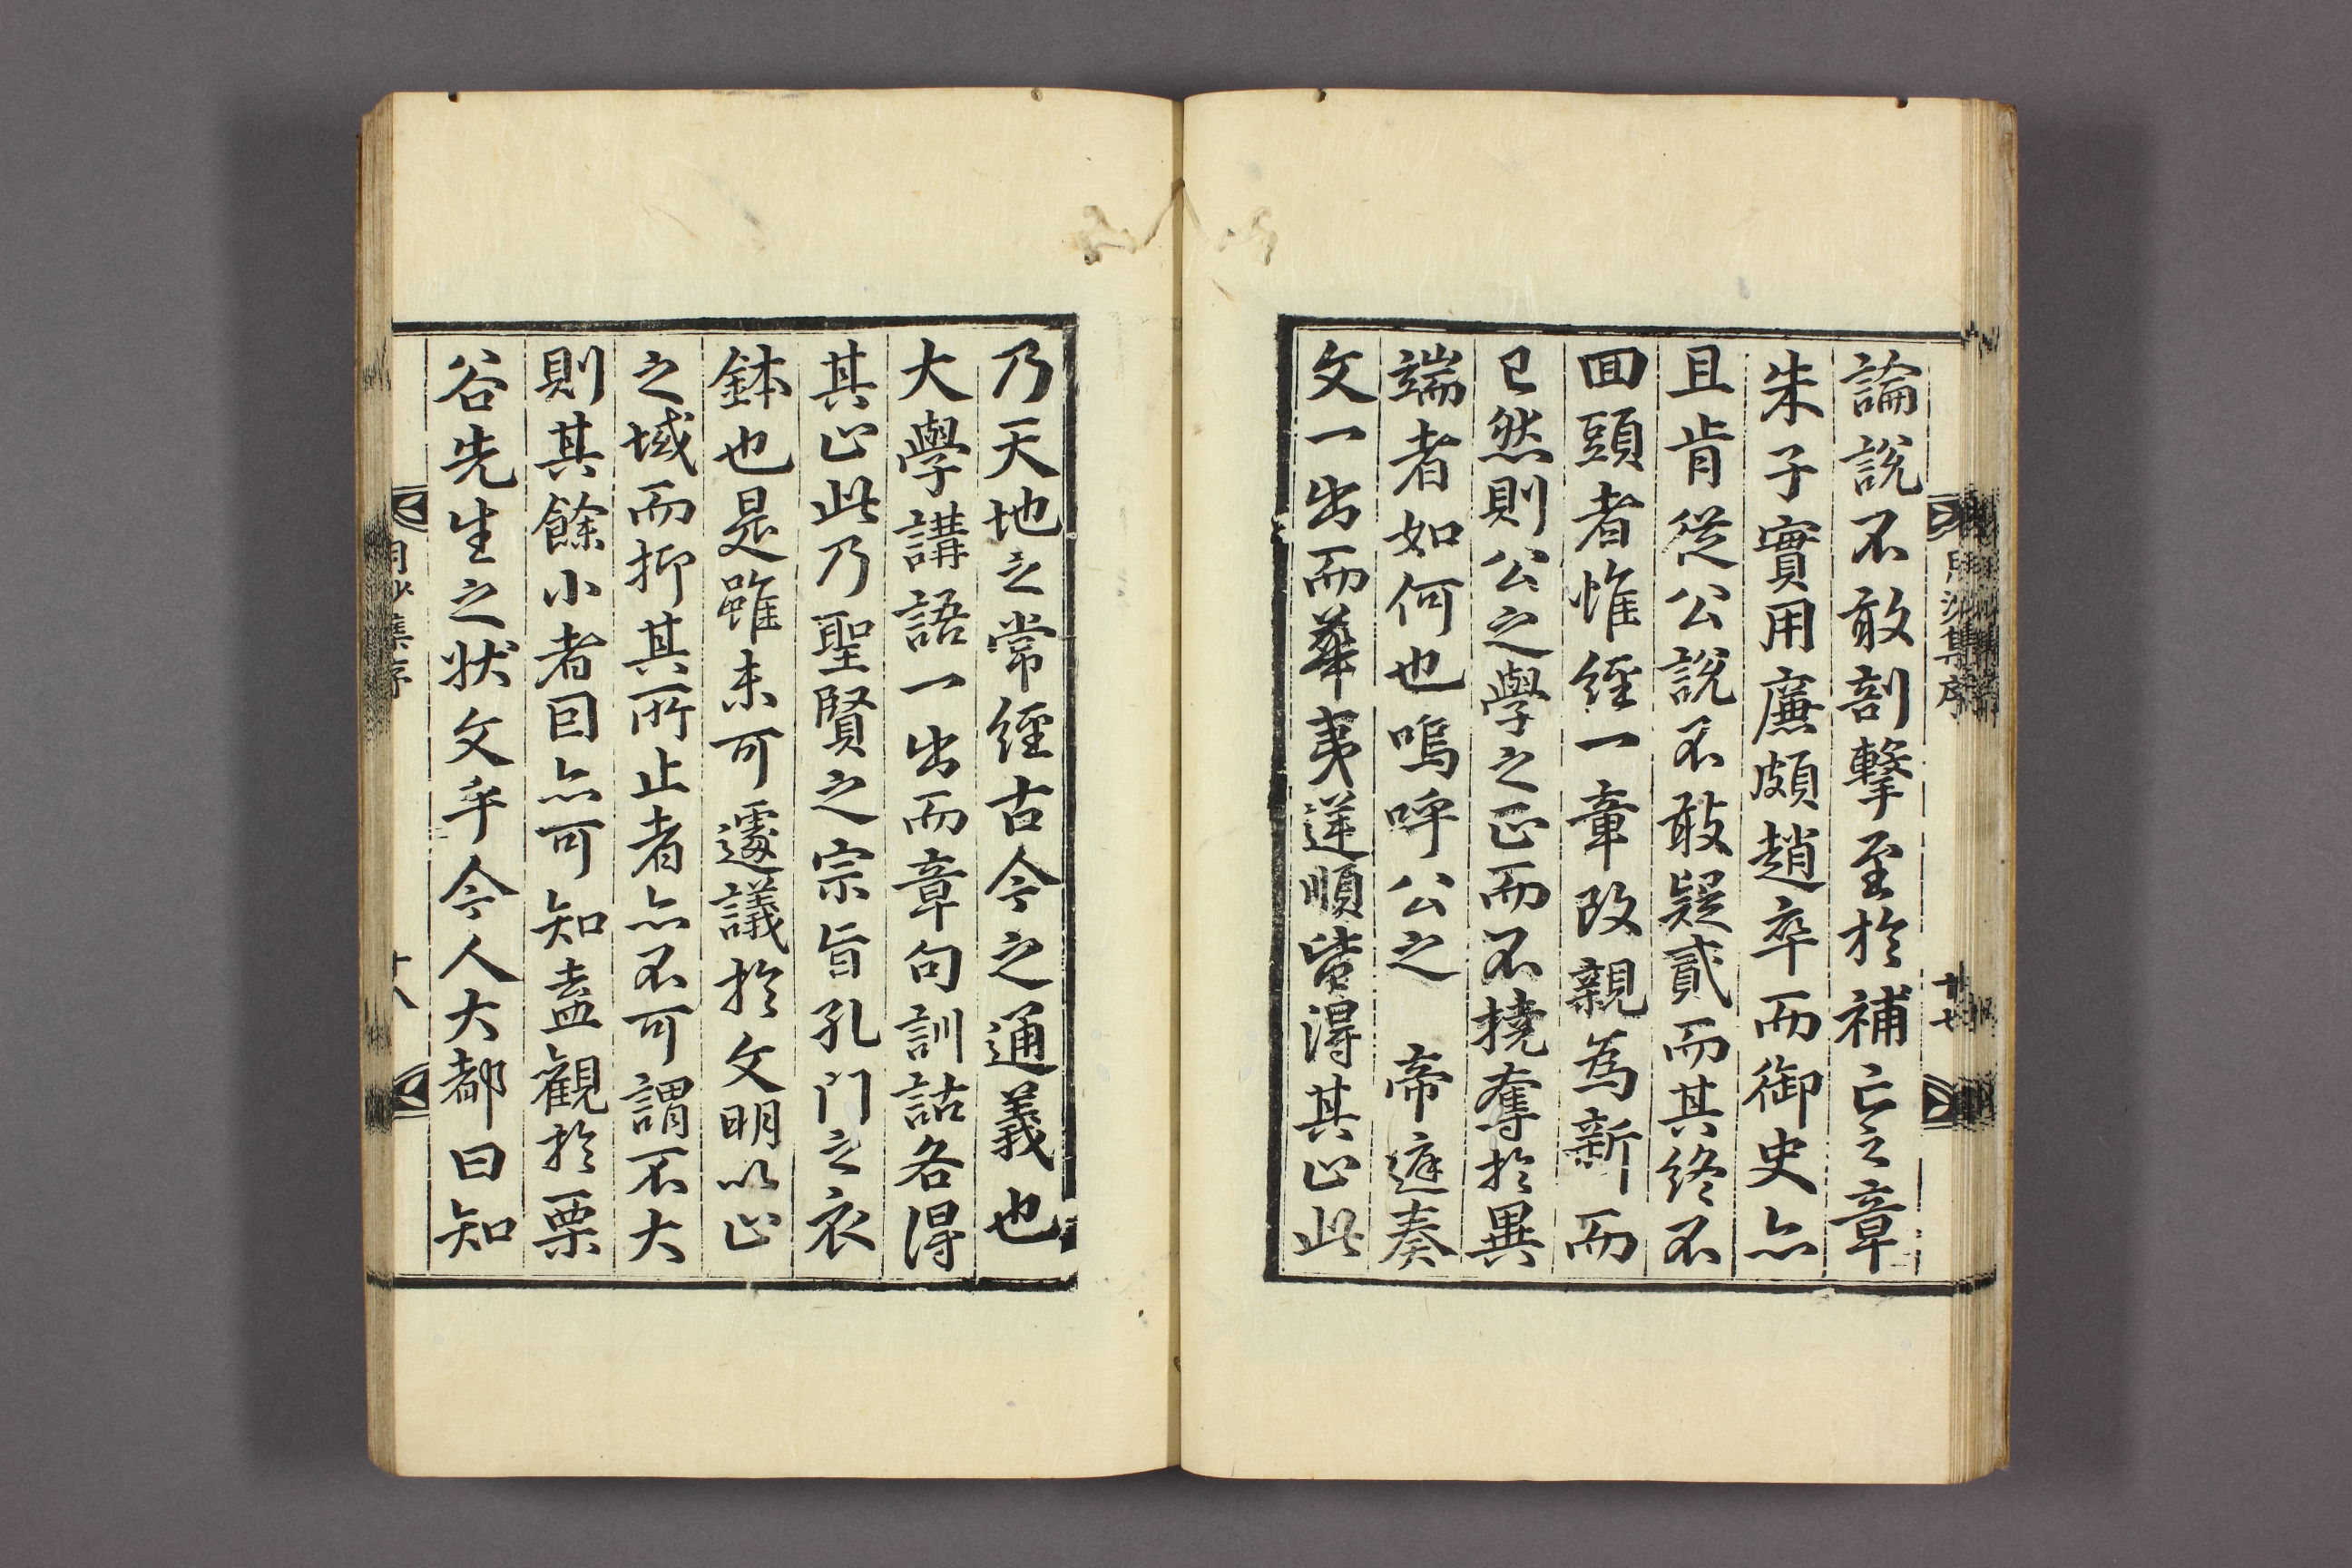 論說不敢剖擊至於補亡之章
朱子實用廉頗趙卒而御史亦
且肯從公說不敢疑貳而其終不
回頭者惟經一章改親為新而
已然則公之學之正而不撓奪於異
端者如何也嗚呼公之 帝庭奏
文一出而華夷逆順皆得其正此
月沙集序
十七
乃天地之常經古今之通義也
大學講語一出而章句訓詁各得
其正此乃聖賢之宗旨孔门之衣
鉢也是雖未可遽議於文明以止
之域而抑其所止者亦不可謂不大
則其餘小者因亦可知盍觀於栗
谷先生之狀文乎今人大都曰知
月沙集序
十八